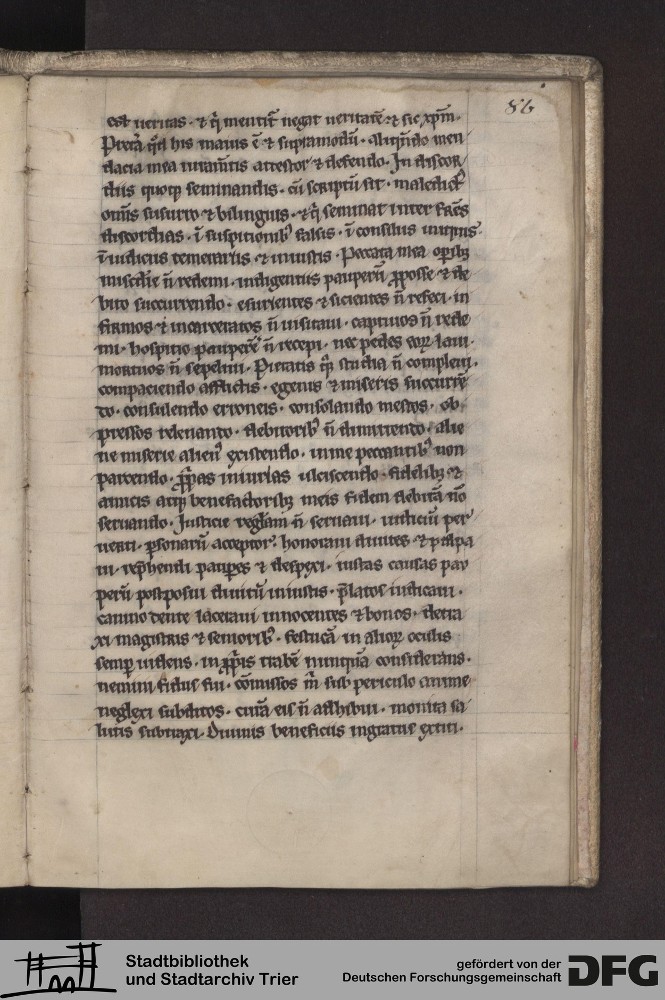 86
est ueritas · ⁊ q̇ mentit̃ negat ueritatē ⁊ sic xp̄m ·
P̱terea qd̓ his maius ē ⁊ sup̱amodū · aliqñdo men
dacia mea iuram̄tis attestor ⁊ defendo · In discor
diis quoq; seminandis · cū scriptū sit · maledict᷒
om̄is susurro ⁊ bilinguis · ⁊ q̇ seminat inter fr̄es
discordias · ī suspitionib᷒ falsis · ī consiliis iniquis
ī iudiciis temerariis ⁊ iniustis · Peccata mea op̱ib;
mis̄die n̄ redemi · indigentiis pauperū ꝓposse ⁊ de
bito succurrendo · esurientes ⁊ sicientes n̄ refeci · in
firmos ⁊ incarceratos n̄ uisitaui · captiuos n̄ rede
mi · hospitio pauperē n̄ recepi · nec pedes eoꝝ laui ·
mortuos n̄ sepeliui · Pietatis m̄ studia n̄ compleui ·
compaciendo afflictis · egenis ⁊ miseris succurrē
do · consulendo erroneis · consolando mestos · ob
pressos releuando · debitorib᷒ n̄ dimittendo · alie
ne miserie alien᷒ existendo · in me peccantib᷒ non
parcendo · ꝓp̱as iniurias ulciscendo · fidelib; ⁊
amicis atq; benefactorib; meis fidem debitā nō
seruando · Iusticie reglam n̄ seruaui · iudiciū per
uerti · ꝑsonarū acceptor · honoraui diuites · ⁊ palpa
ui · rep̱hendi pauꝑes ⁊ despexi · iustas causas pau
perū postposui diuitū iniustis · p̄latos iudicaui ·
canino dente laceraui innocentes ⁊ bonos · detra
xi magistris ⁊ seniorib᷒ · festucā in alioꝝ oculis
semꝑ uidens · in ꝓp̱is trabē nunquā considerans ·
nemini fidus fui · cōmissos m̄ sub periculo anime
neglexi subditos · curā eis n̄ adhibui · monita sa
lutis subtraxi · Diuinis beneficiis ingratus extiti ·
Stadtbibliothek
und Stadtarchiv Trier
gefördert von der
Deutschen Forschungsgemeinschaft
DFG